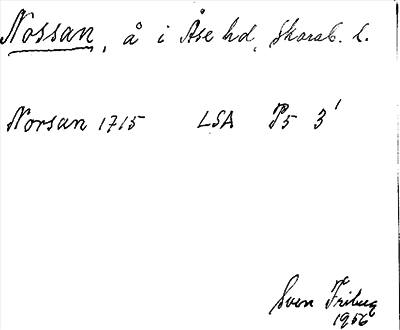 Nossan, å i Åse hd, Skarab. l.
Norsan 1715 LSA P5 3'
Sven Friberg
1956